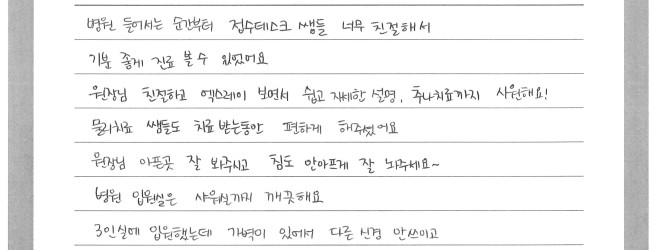 병원 들어서는 순간부터 접수데스크 쌤들 너무 친절해서
기분 좋게 진료 볼 수 있었어요
원장님 친절하고 엑스레이 보면서 쉽고 자세한 설명, 추나치료까지 시원해요!
물리치료 쌤들도 치료 받는동안 편하게 해주셨어요
원장님 아픈곳 잘 봐주시고 침도 안아프게 잘 놔주세요~
병원 입원실은 샤워실까지 깨끗해요
3인실에 입원했는데 가벽이 있어서 다른 신경 안쓰이고